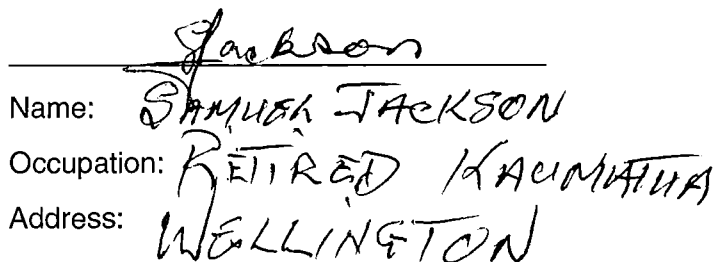 Jackson
Name: SAMUEL JACKSON
Occupation: RETIRED KAUMATUA
Address: WELLINGTON